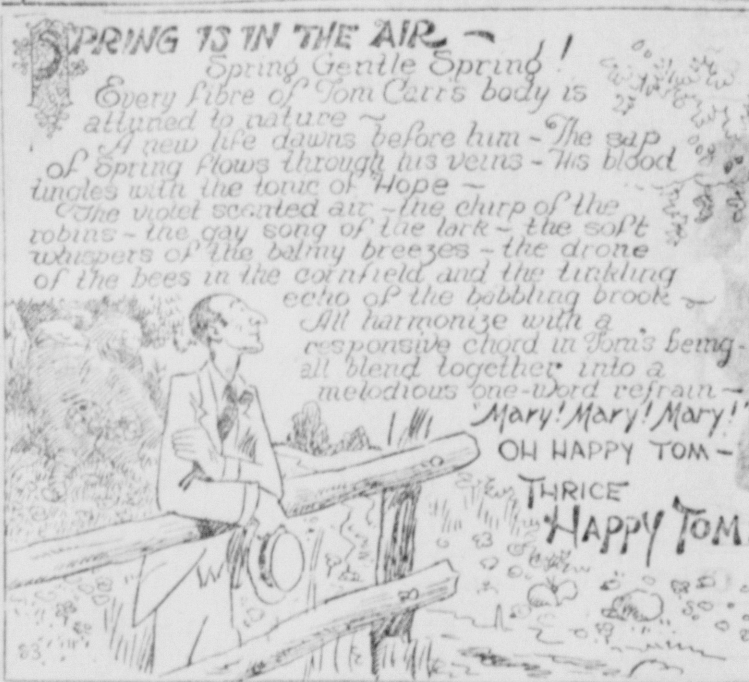 SPRING IS IN THE AIR ~
Spring Gentle Spring!
Every fibre of Tom Carr's body is
attuned to nature ~
A new life dawns before him - The sap
of Spring flows through his veins - His blood
tingles with the tonic of Hope ~
The violet scented air - the chirp of the
robins - the gay song of the lark - the soft
whispers of the balmy breezes - the drone
of the bees in the cornfield and the tinkling
echo of the babbling brook ~
All harmonize with a
responsive chord in Tom's being -
all blend together into a
melodious one-word refrain -
"Mary! Mary! Mary!"
OH HAPPY TOM -
THRICE
HAPPY TOM
83